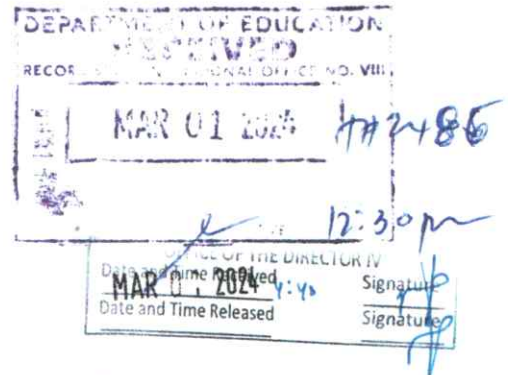 DEPARTMENT OF EDUCATION
RECEIVED
RECORDS REGIONAL OFFICE NO. VIII
MAR 01 2024
12:30 pm
OFFICE OF THE DIRECTOR IV
Date and Time Received Signature
MAR 2024
Date and Time Released Signature